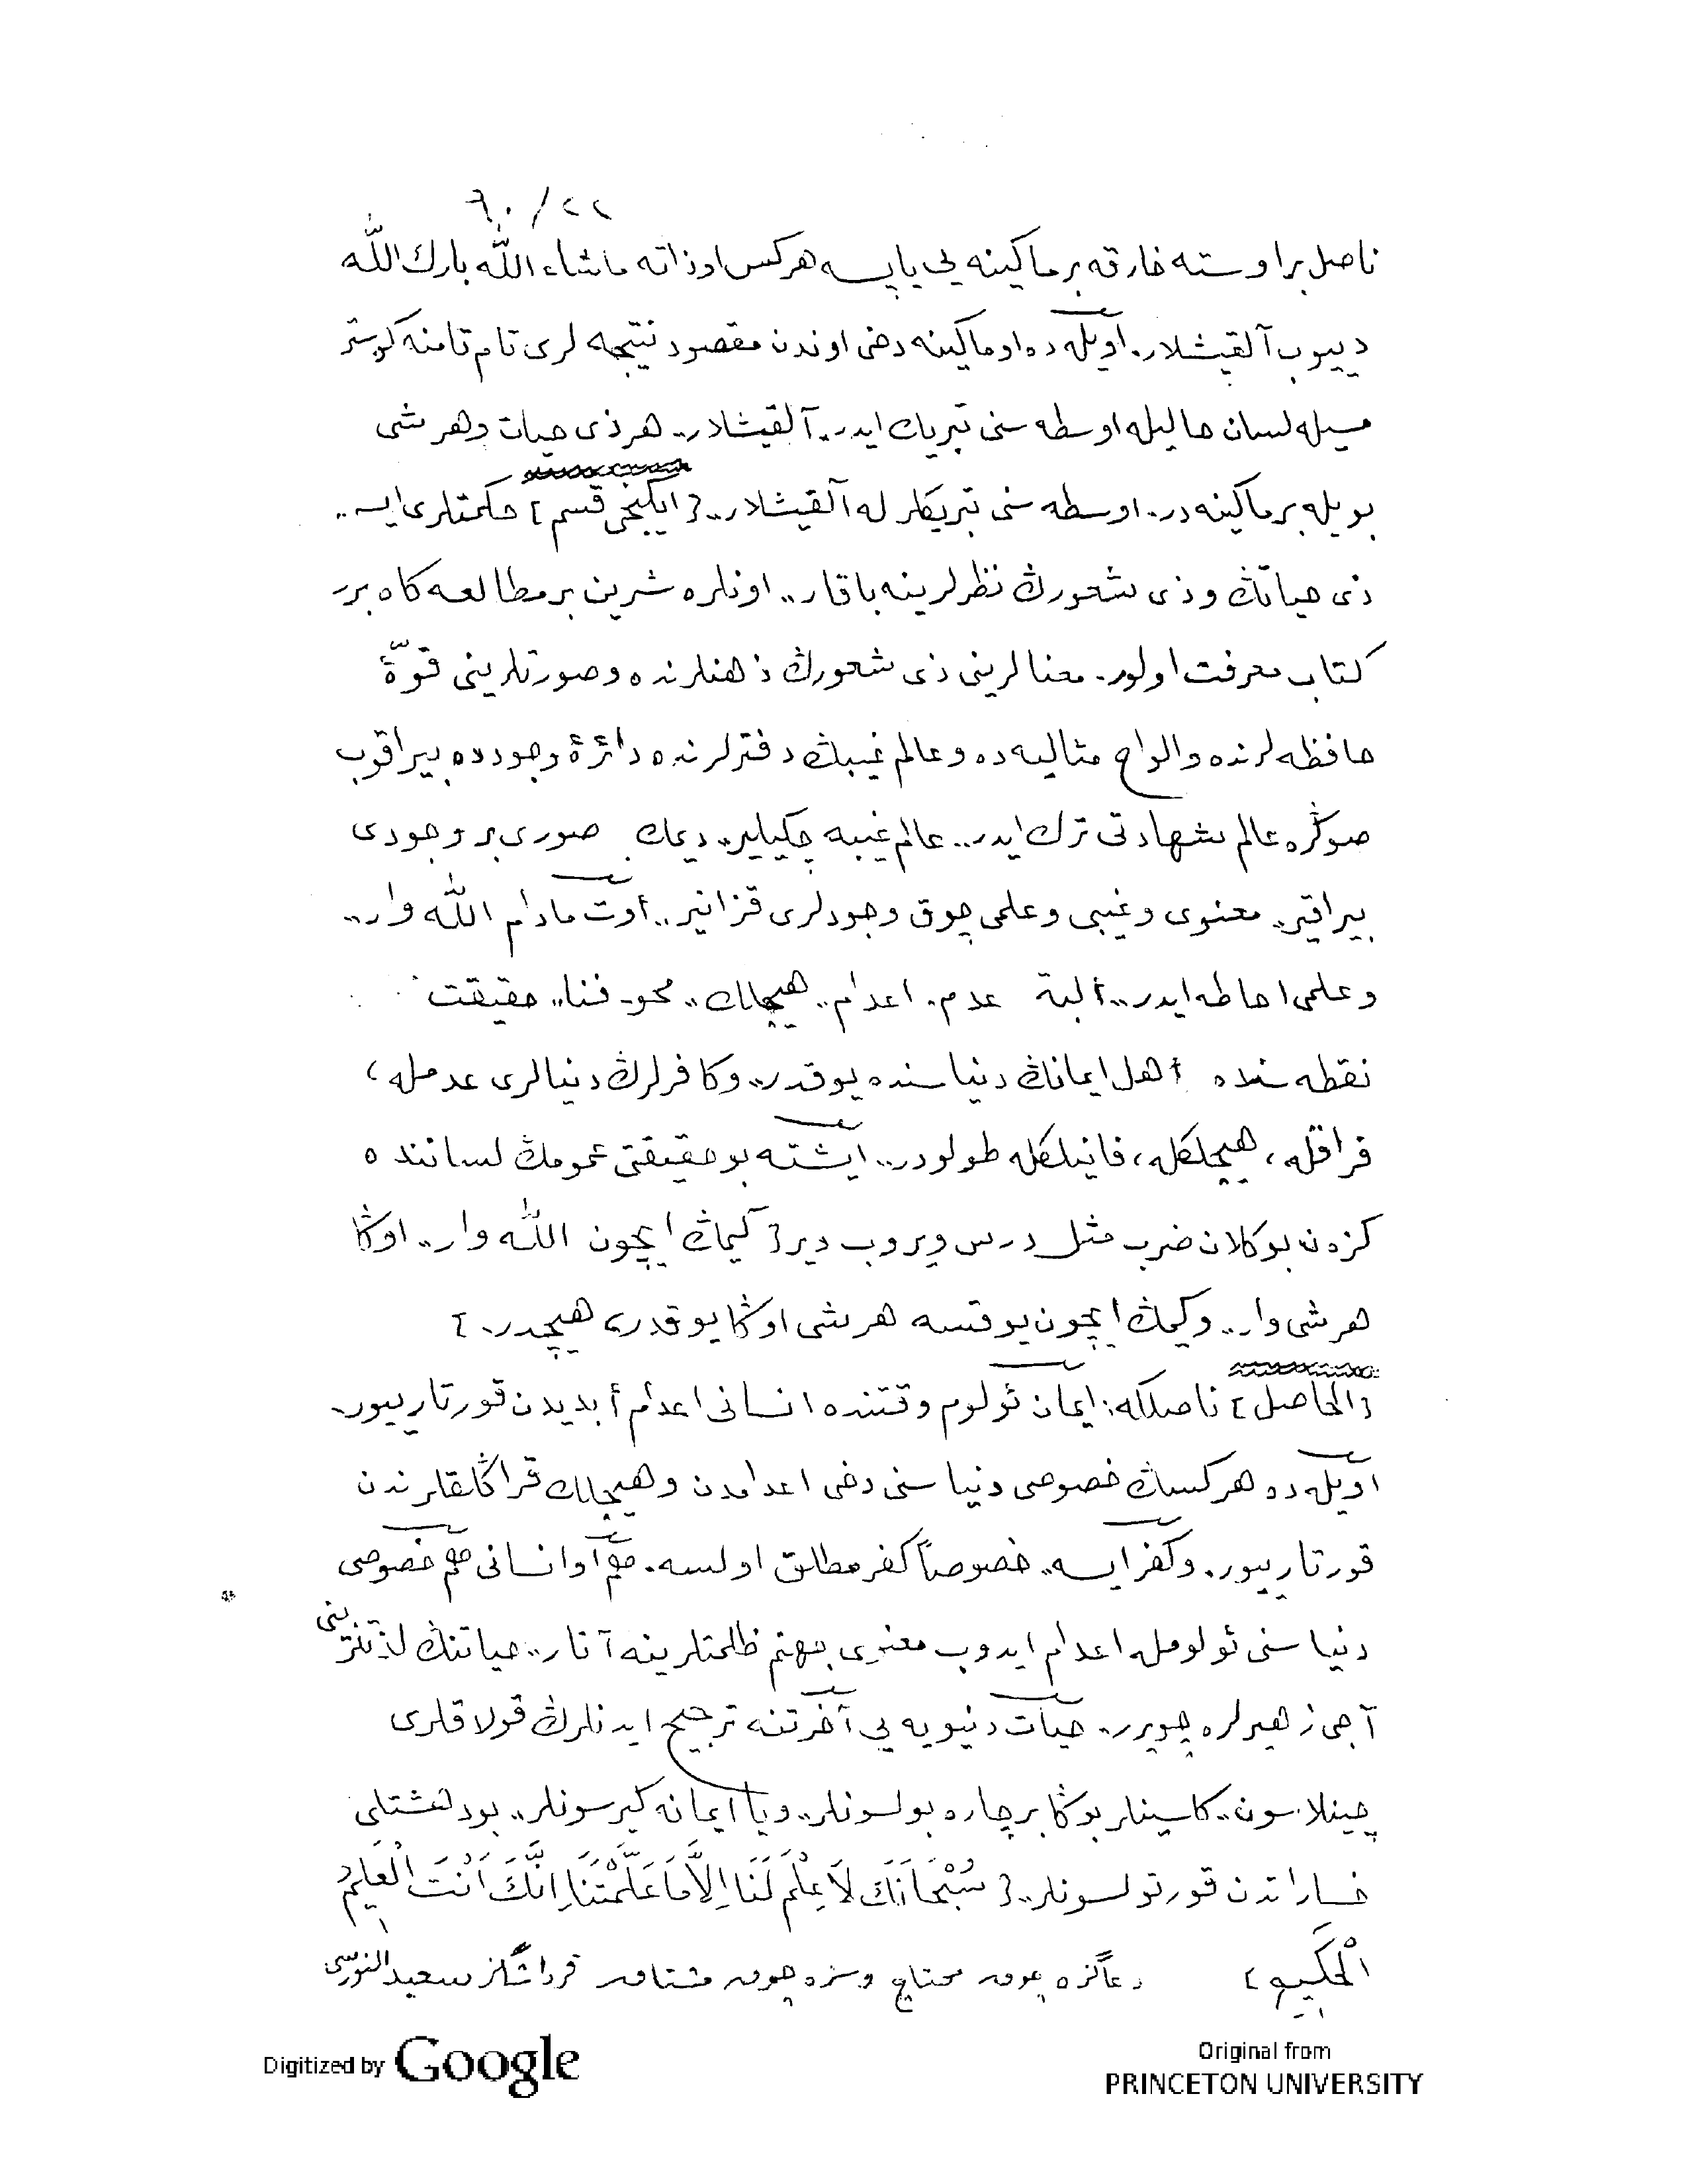 ٦٠/٢٢
ناصل بر اوسته خارقه بر ماكينه يى ياپسه هركس او ذاته ماشاء اللّٰه بارك اللّٰه
دييوب آلقيشلار. اويله ده او ماكينه دخى اوندن مقصود نتيجه لرى تام تامنه كوستر
مسيله لسان حاليله اوسطه سنى تبريك ايدر. آلقيشلار.. هر ذى حيات و هر شى
بويله بر ماكينه در. اوسطه سنى تبريكلر له آلقيشلار.. [ايكنجى قسم] حكمتلرى ايسه..
ذى حياتڭ و ذى شعورڭ نظرلرينه باقار.. اونلره شرين بر مطالعه كاه برر
كتاب معرفت اولور. معنالرينى ذى شعورڭ ذهنلرنده و صورتلرينى قوّۀ
حافظه لرنده و الواح مثاليه ده و عالم غيبڭ دفترلرنده دائرۀ وجودده بيراقوب
صوڭره عالم شهادتى ترك ايدر.. عالم غيبه چكيلير. ديمك صورى بر وجودى
بيراقير. معنوى و غيبى و علمى چوق وجودلرى قزانير.. أوت مادام اللّٰه وار..
و علمى احاطه ايدر.. ألبته عدم. اعدام.. هيچلك.. محو. فنا.. حقيقت
نقطه سنده أهل ايمانڭ دنياسنده يوقدر.. و كافرلرڭ دنيالرى عدمله،
فراقله، هيچلكله، فانيلكله طولودر.. ايشته بو حقيقتى عمومڭ لساننده
كزه ن بو كلان ضرب مثل درس ويروب دير [كيمڭ ايچون اللّٰه وار.. اوڭا
هر شى وار.. و كيمڭ ايچون يوقسه هر شى اوڭا يوقدر، هيچدر.]
[الحاصل] ناصلكه: ايمان ئولوم وقتنده انسانى اعدام أبديدن قورتارييور.
اويله ده هركسڭ خصوصى دنياسنى دخى اعدامدن و هيچلك قراڭلقلرندن
قورتارييور. و كفر ايسه.. خصوصاً كفر مطلق اولسه. هم او انسانى هم خصوصى
دنياسنى ئولومله اعدام ايدوب معنوى جهنم ظلمتلرينه آتار.. حياتنڭ لذتلرينى
آجى زهيرلره چويرر.. حيات دنيويه يى آخرتنه ترجيح ايدنلرڭ قولاقلرى
چينلاسون.. كلسينلر بوڭا بر چاره بولسونلر.. ويا ايمانه كيرسونلر.. بو دهشتلى
خساراتدن قورتولسونلر.. [سُبْحَانَكَ لَا عِلْمَ لَنَا اِلَّا مَا عَلَّمْتَنَا اِنَّكَ اَنْتَ الْعَلِيمُ
الْحَكِيمُ] دعاڭزه چوق محتاج و سزه چوق مشتاق قرداشڭز سعيد النورسى
Digitized by Google
Original from
PRINCETON UNIVERSITY